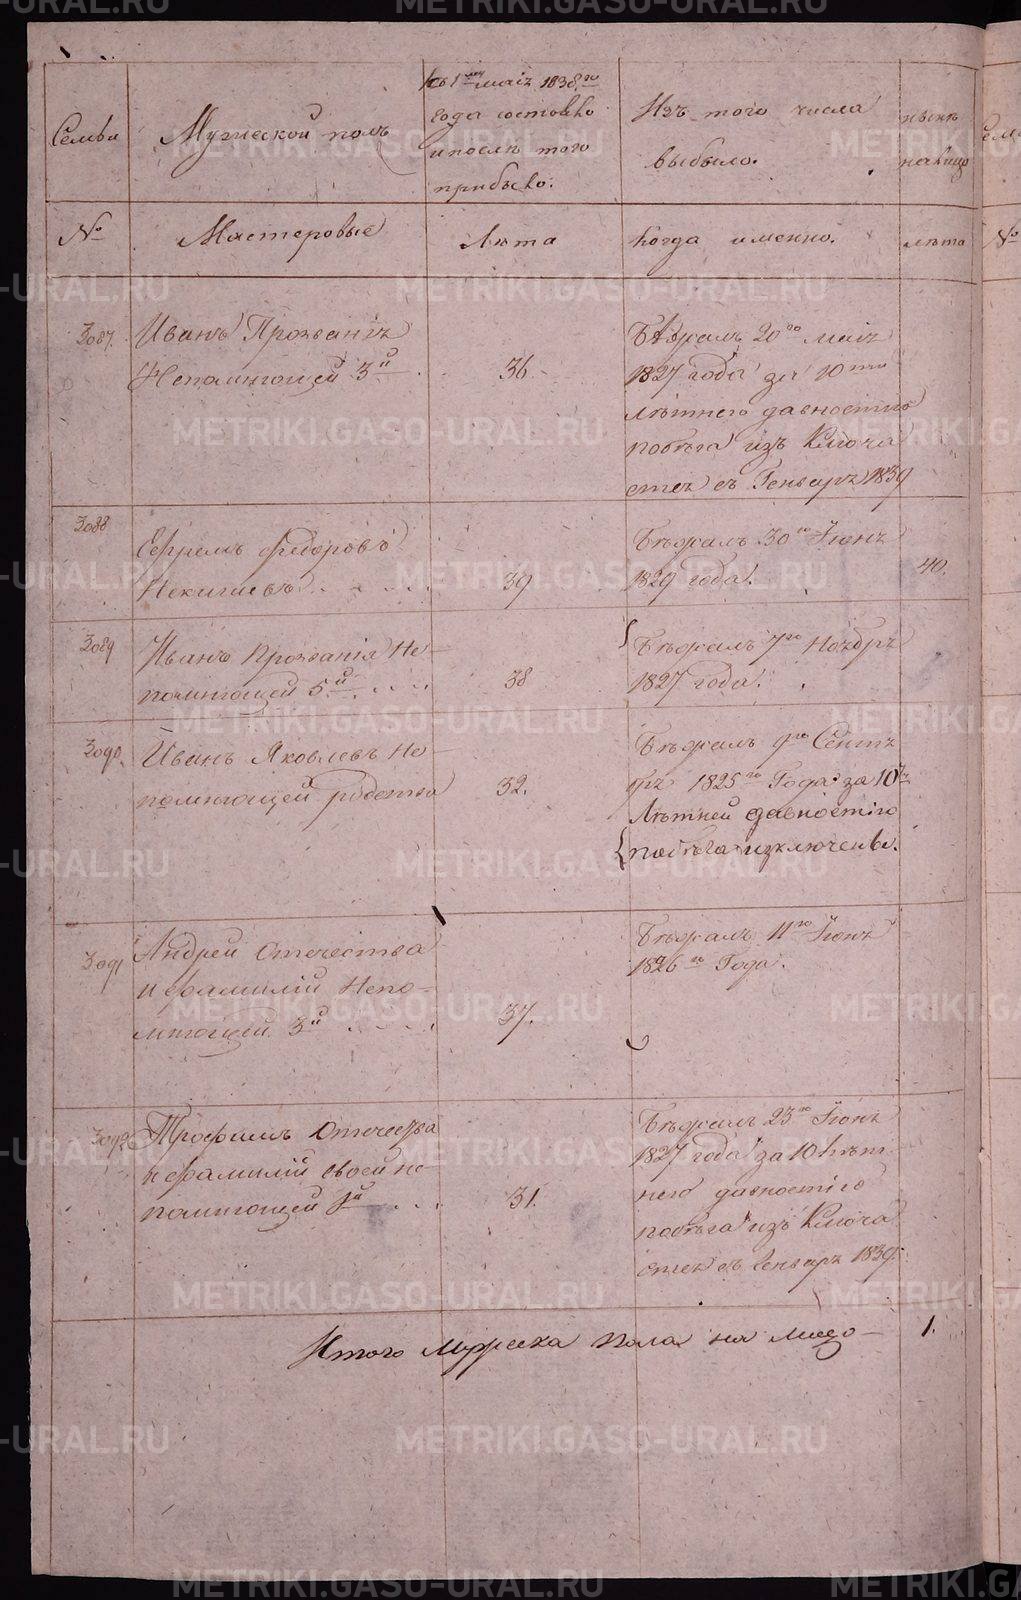 Семьи
Мужеской полъ
Къ 1му маія 1838го
года состояло
и послѣ того
прибыло.
Изъ того числа
выбыло.
нынѣ
на лицо
№
Мастеровые
Лѣта
Когда именно.
лѣта
№
3087.
Иванъ Прозванія
Непомнющей 3й
36
Бѣжалъ 20го маія
1827 года за 10ти
лѣтнею давностію
побѣга изъ Ключа
стех въ Генварѣ 1839
3088
Ефремъ Федоровъ
39
Бѣжалъ 30го Іюня
1829 года.
40.
3089
Иванъ Прозванія Не-
помнющей 5й
38
Бѣжалъ 7го Ноября
1827 года.
3090.
Иванъ Яковлевъ Не-
помнющей родства
32.
Бѣжалъ 9го Сентя
бря 1825го Года за 10ти
Лѣтней давностію
побѣга изключенъ.
3091
Андрей Отечества
и фамиліи Непо-
мнющей 3й
37.
Бѣжалъ 11го Іюня
1826го Года.
3092
Трофимъ Отечества
и фамиліи своей не-
помнющей 1й
31.
Бѣжалъ 23го Іюня
1827 года за 10 лѣт-
нею давностію
побѣга изъ Ключа
стех въ Генварѣ 1839.
Итого Мужеска пола на лицо - 1.
METRIKI.GASO-URAL.RU